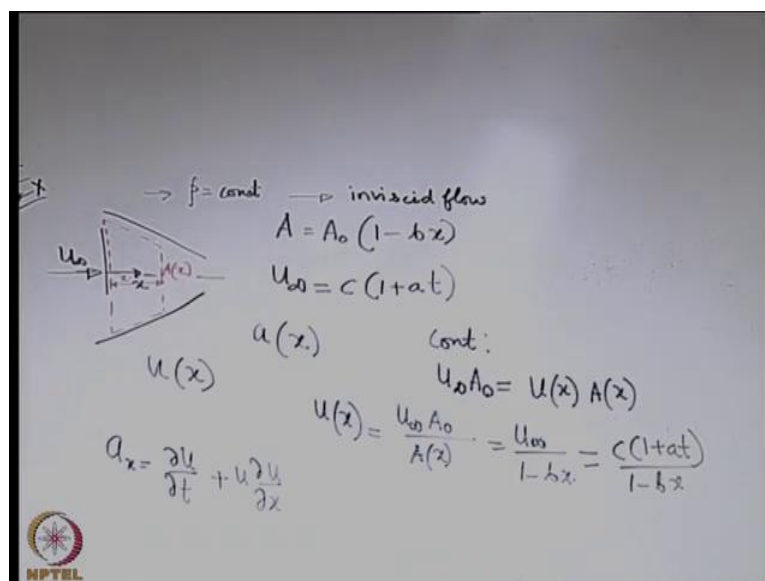 x
→ ρ = const → inviscid flow
A = A₀ (1 - bx)
U∞
x
A(x)
U∞ = c (1 + at)
a(x)
u(x)
Cont:
U∞ A₀ = U(x) A(x)
U(x) = U∞ A₀ / A(x) = U∞ / 1 - bx = c(1 + at) / 1 - bx
aₓ = ∂u/∂t + u ∂u/∂x
NPTEL